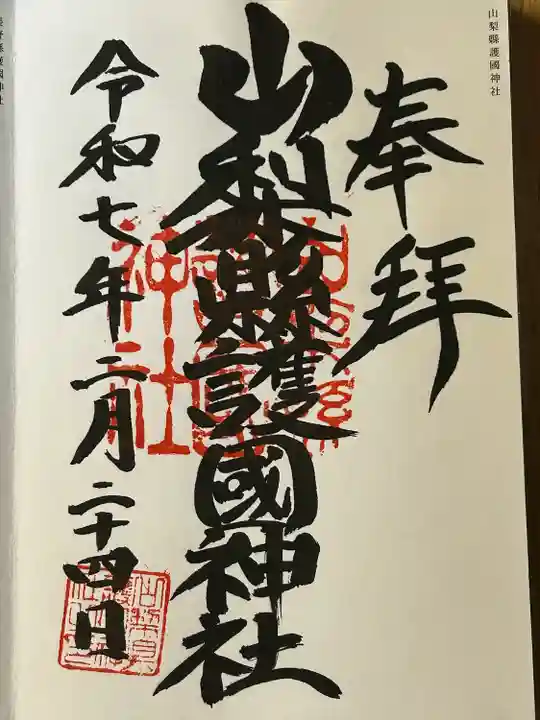 山梨縣護國神社
奉拝
山梨縣護國神社
令和七年二月二十四日
神社